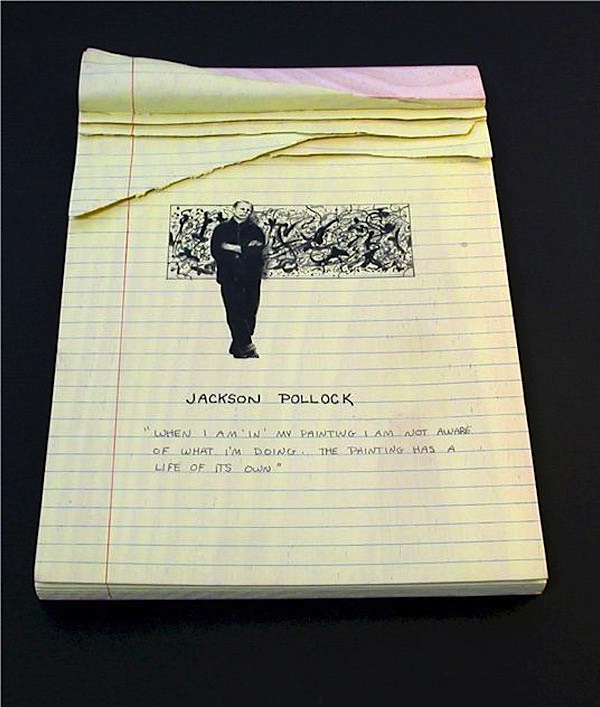 JACKSON POLLOCK
"WHEN I AM 'IN' MY PAINTING I AM NOT AWARE
OF WHAT I'M DOING.. THE PAINTING HAS A
LIFE OF ITS OWN"